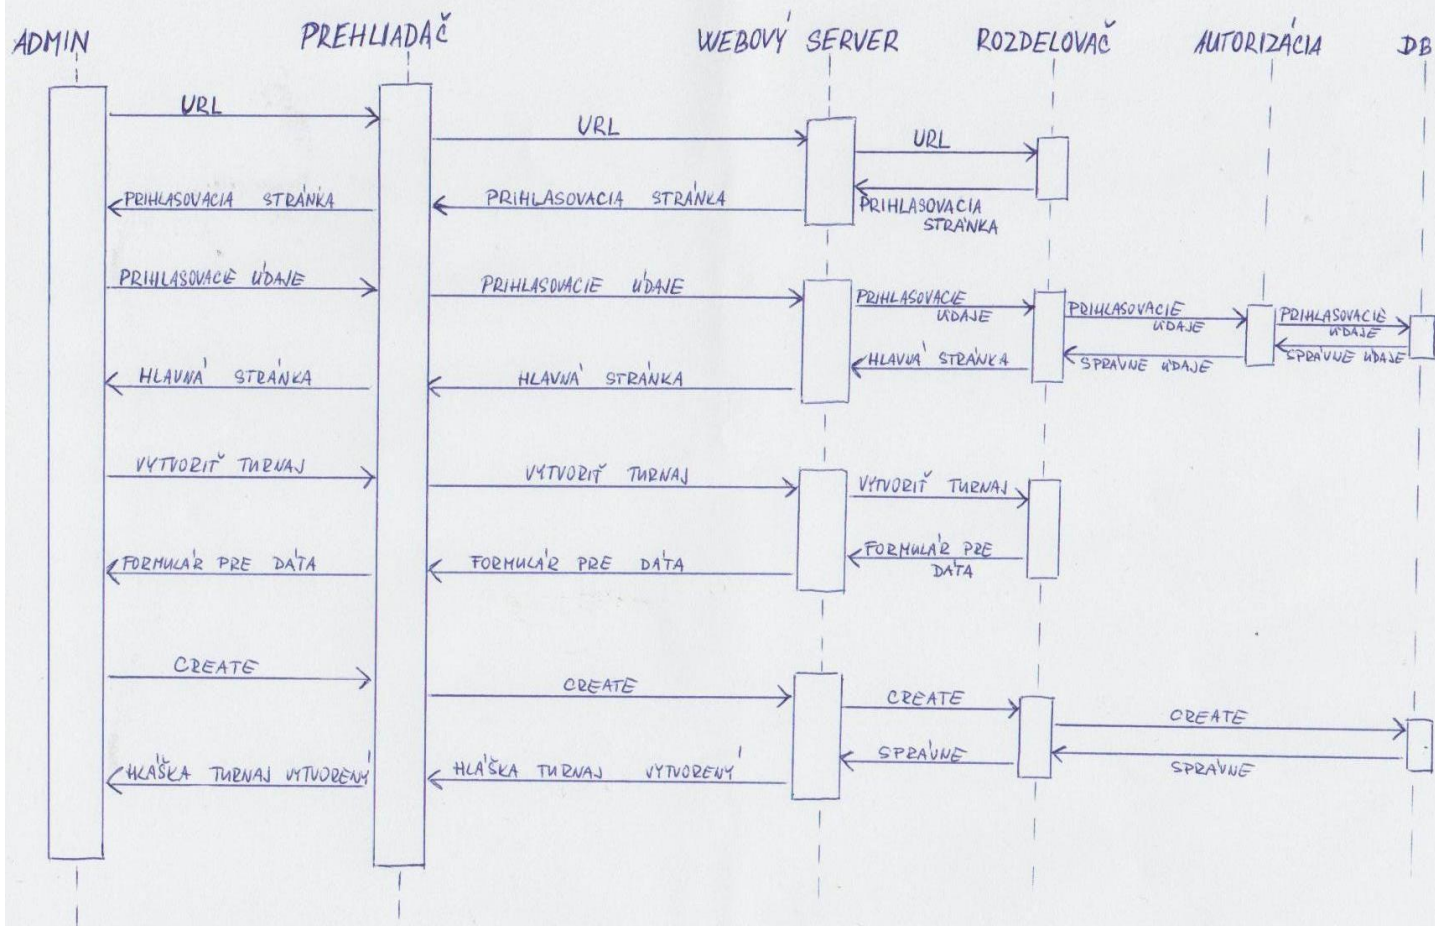 ADMIN
PREHLIADAČ
WEBOVÝ SERVER
ROZDELOVAČ
AUTORIZÁCIA
DB
URL
URL
URL
PRIHLASOVACIA STRÁNKA
PRIHLASOVACIA STRÁNKA
PRIHLASOVACIA
STRÁNKA
PRIHLASOVACIE ÚDAJE
PRIHLASOVACIE ÚDAJE
PRIHLASOVACIE
ÚDAJE
PRIHLASOVACIE
ÚDAJE
PRIHLASOVACIE
ÚDAJE
SPRÁVNE ÚDAJE
SPRÁVNE ÚDAJE
HLAVNÁ STRÁNKA
HLAVNÁ STRÁNKA
HLAVNÁ STRÁNKA
VYTVORIŤ TURNAJ
VYTVORIŤ TURNAJ
VYTVORIŤ TURNAJ
FORMULÁR PRE DÁTA
FORMULÁR PRE DÁTA
FORMULÁR PRE
DÁTA
CREATE
CREATE
CREATE
CREATE
HLÁŠKA TURNAJ VYTVORENÝ
HLÁŠKA TURNAJ VYTVORENÝ
SPRÁVNE
SPRÁVNE